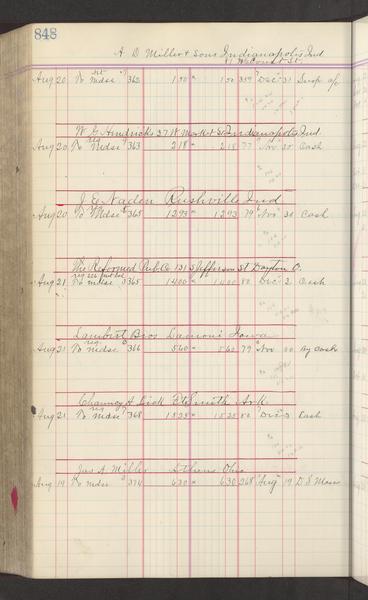 848
A. D. Miller & Sons Indianapolis Ind
Aug 20 To mdse 362 150 150 Dec 31 Susp a/c
W. G. Hendricks 37 W Market St Indianapolis Ind
Aug 20 To mdse 363 218 218 77 Nov 30 Cash
J. E. Naden Rushville Ind
Aug 20 To Mdse 365 1293 1293 79 Nov 30 Cash
The Reformed Pub. Co. 131 S Jefferson St Dayton O.
Aug 21 To mdse 365 1400 1400 80 Dec 2 Cash
Lambert Bros Lamoni Iowa
Aug 21 To mdse 366 560 560 79 Nov 30 By Cash
Chauncey A. Lick Ft Smith Ark
Aug 21 To mdse 368 1525 1525 80 Dec 3 Cash
Jas A. Miller Athens Ohio
Aug 19 To mdse 374 630 630 268 Aug 19 D. S.